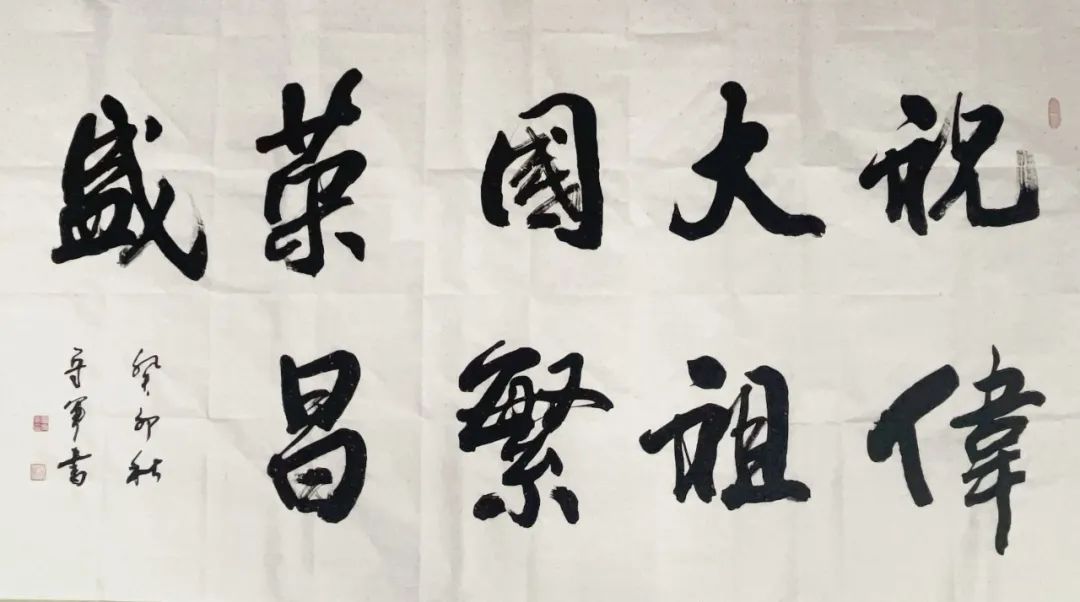 祝偉
大祖
國繁
榮昌
盛
癸卯秋
守军书